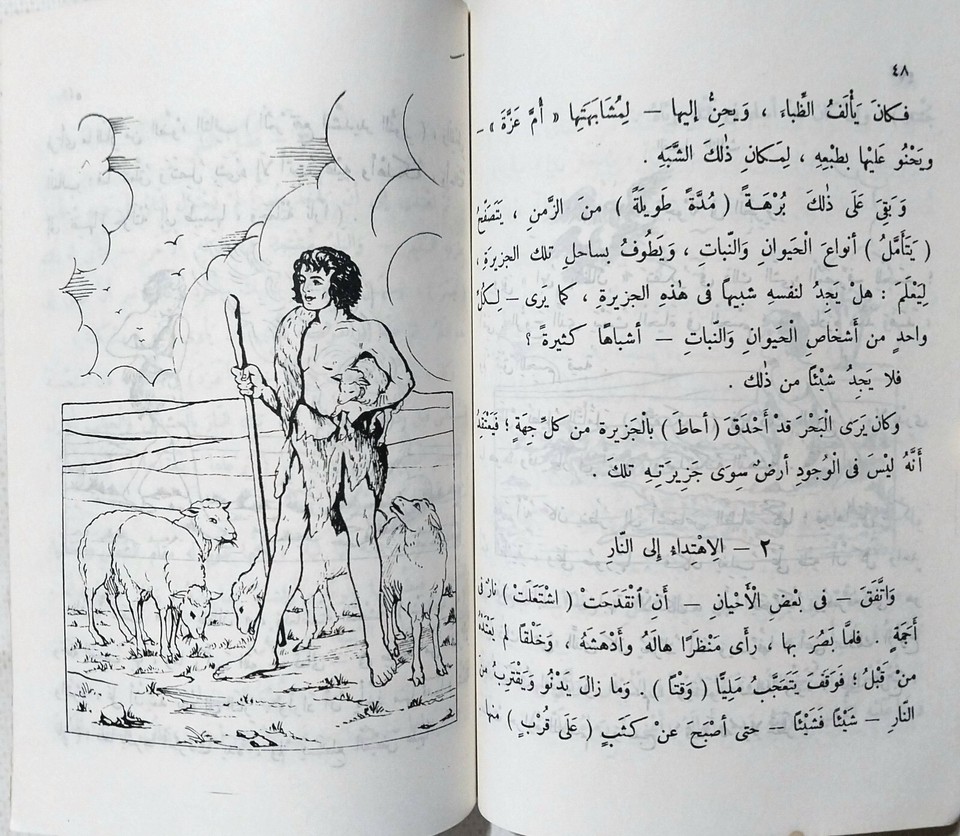 ٤٨
فكانَ يَأْلَفُ الظِّباءَ ، وَيحِنُّ إليها — لِمُشَابَهَتِها « أُمَّ عَزَّةَ » —
ويَحْنُو عَلَيْها بطبْعِهِ ، لِمَكانِ ذٰلكَ الشَّبَهِ .
وَبَقِيَ عَلَى ذٰلكَ بُرْهَةً ( مُدَّةً طَوِيلَةً ) منَ الزَّمنِ ، يَتَصَفَّحُ
( يَتَأَمَّلُ ) أنواعَ الْحَيوانِ والنَّباتِ ، وَيَطُوفُ بساحلِ تلكَ الجزيرةِ،
لِيَعْلَمَ : هلْ يَجِدُ لنفسهِ شبيهاً فى هٰذهِ الجزيرةِ ، كما يَرى — لِكلِّ
واحدٍ من أشخاصِ الْحَيوانِ وَالنَّباتِ — أشباهًا كثيرةً ؟
فلا يَجِدُ شيْئًا من ذٰلك .
وكان يَرَى الْبَحْرَ قدْ أَحْدَقَ ( أحاطَ ) بالْجَزيرة من كلِّ جِهَةٍ ؛ فَيَعْتَقِدُ
أَنَّهُ ليْسَ فى الْوُجودِ أرضٌ سِوَى جَزِيرَتِهِ تلكَ .
٢ — الِاهْتِداءُ إلى النّارِ
وَاتَّفَقَ — فى بعْضِ الْأَحْيانِ — أَنِ ٱنْقَدَحَتْ ( اشْتَعَلَتْ ) نارٌ فى
أَجَمَةٍ . فلمَّا بَصُرَ بها ، رأى مَنْظَرًا هالَهُ وأَدْهَشَهُ ، وَخَلْقاً لم يَعْتَدْهُ
منْ قَبْلُ ؛ فوَقَفَ يَتَعَجَّبُ مَلِيًّا ( وَقْتًا ) . وَما زالَ يَدْنُو وَيَقْتَرِبُ منَ
النّارِ — شَيْئًا فَشَيْئًا — حتى أصْبَحَ عنْ كَثَبٍ ( عَلَى قُرْبٍ ) منها .